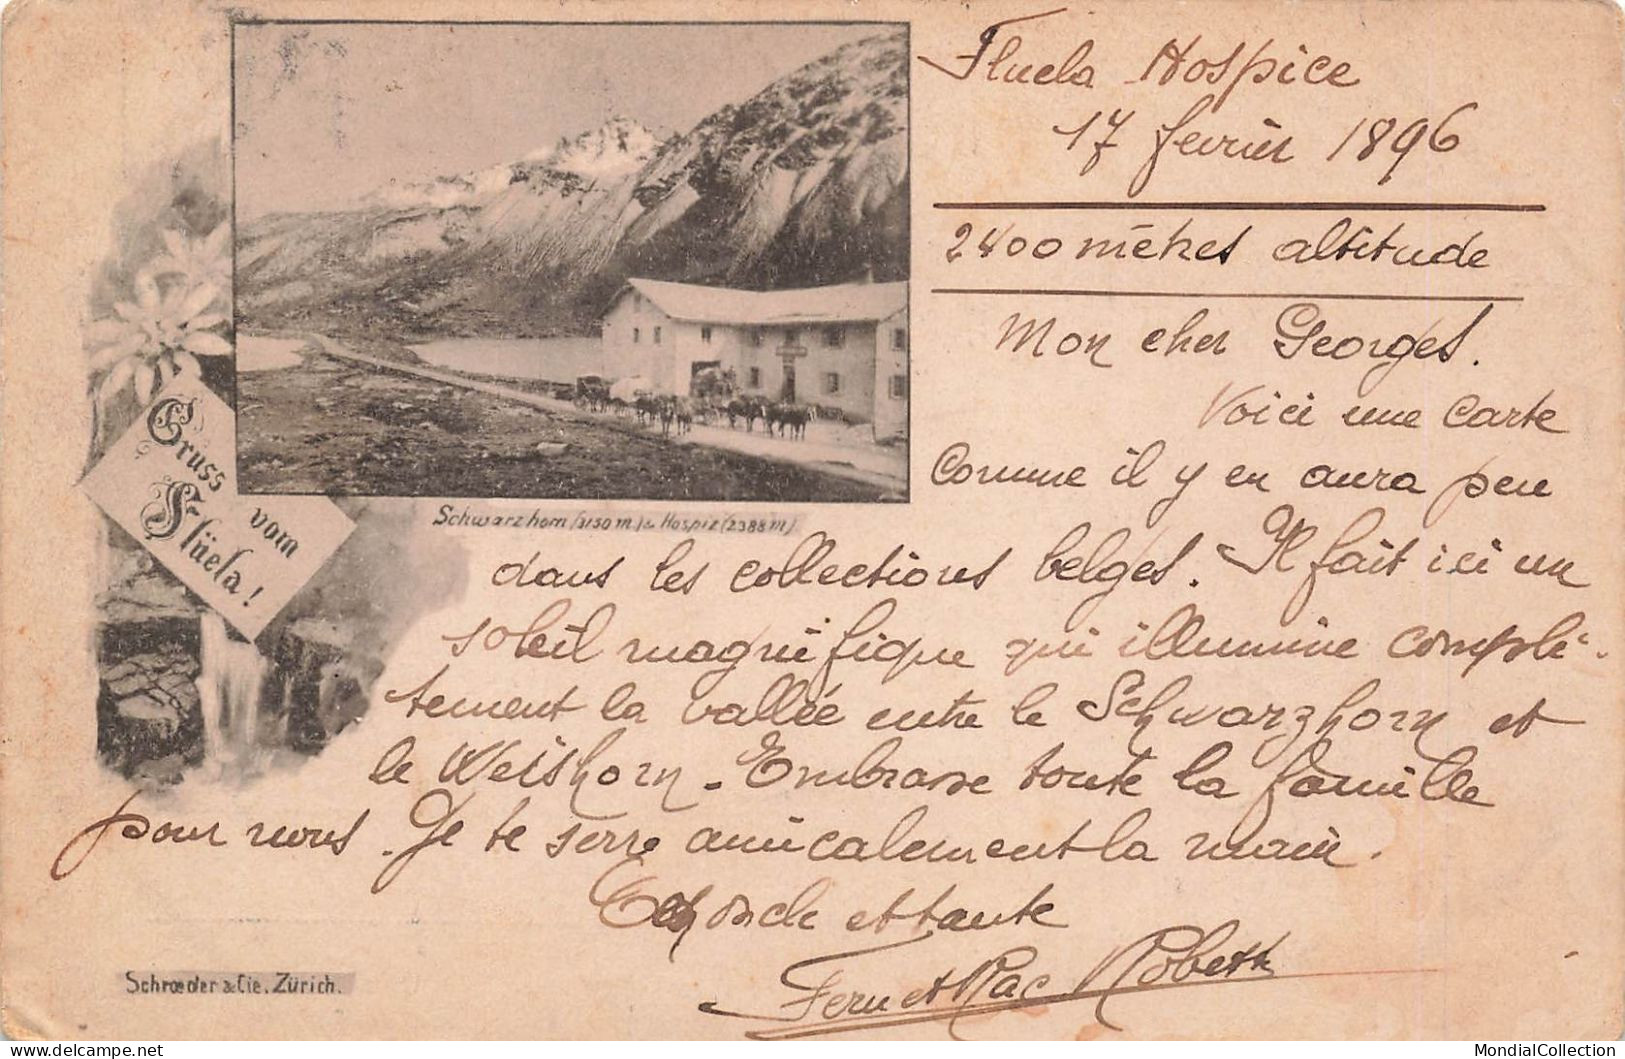 Fluela Hospice
17 fevrier 1896
2400 mètres altitude
Mon cher Georges.
Voici une carte
Comme il y en aura peu
dans les collections belges. Il fait ici un
soleil magnifique qui illumine complè-
tement la vallée entre le Schwarzhorn et
le Weishorn. Embrasse toute la famille
pour nous. Je te serre amicalement la main.
oncle et tante
Fern et Rac Robeth
Gruss
vom
Flüela!
Schwarzhorn (3150 m.) & Hospiz (2388 m)
Schrœder & Cie. Zürich.
MondialCollection